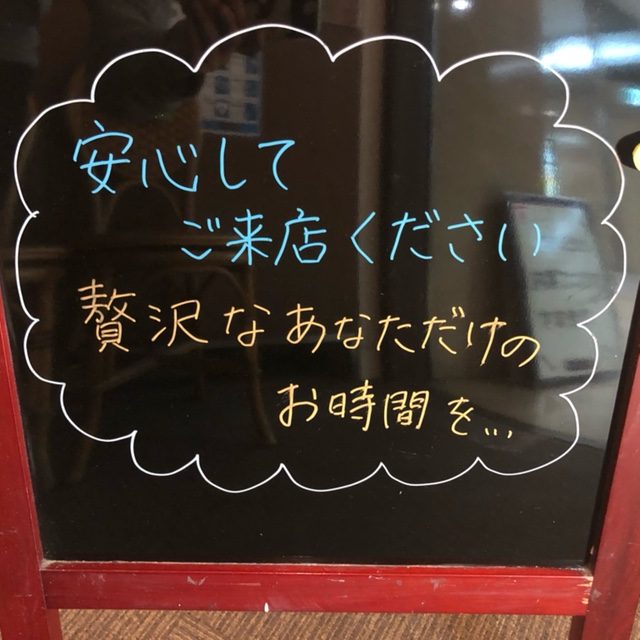 安心して
ご来店ください
贅沢なあなただけの
お時間を...